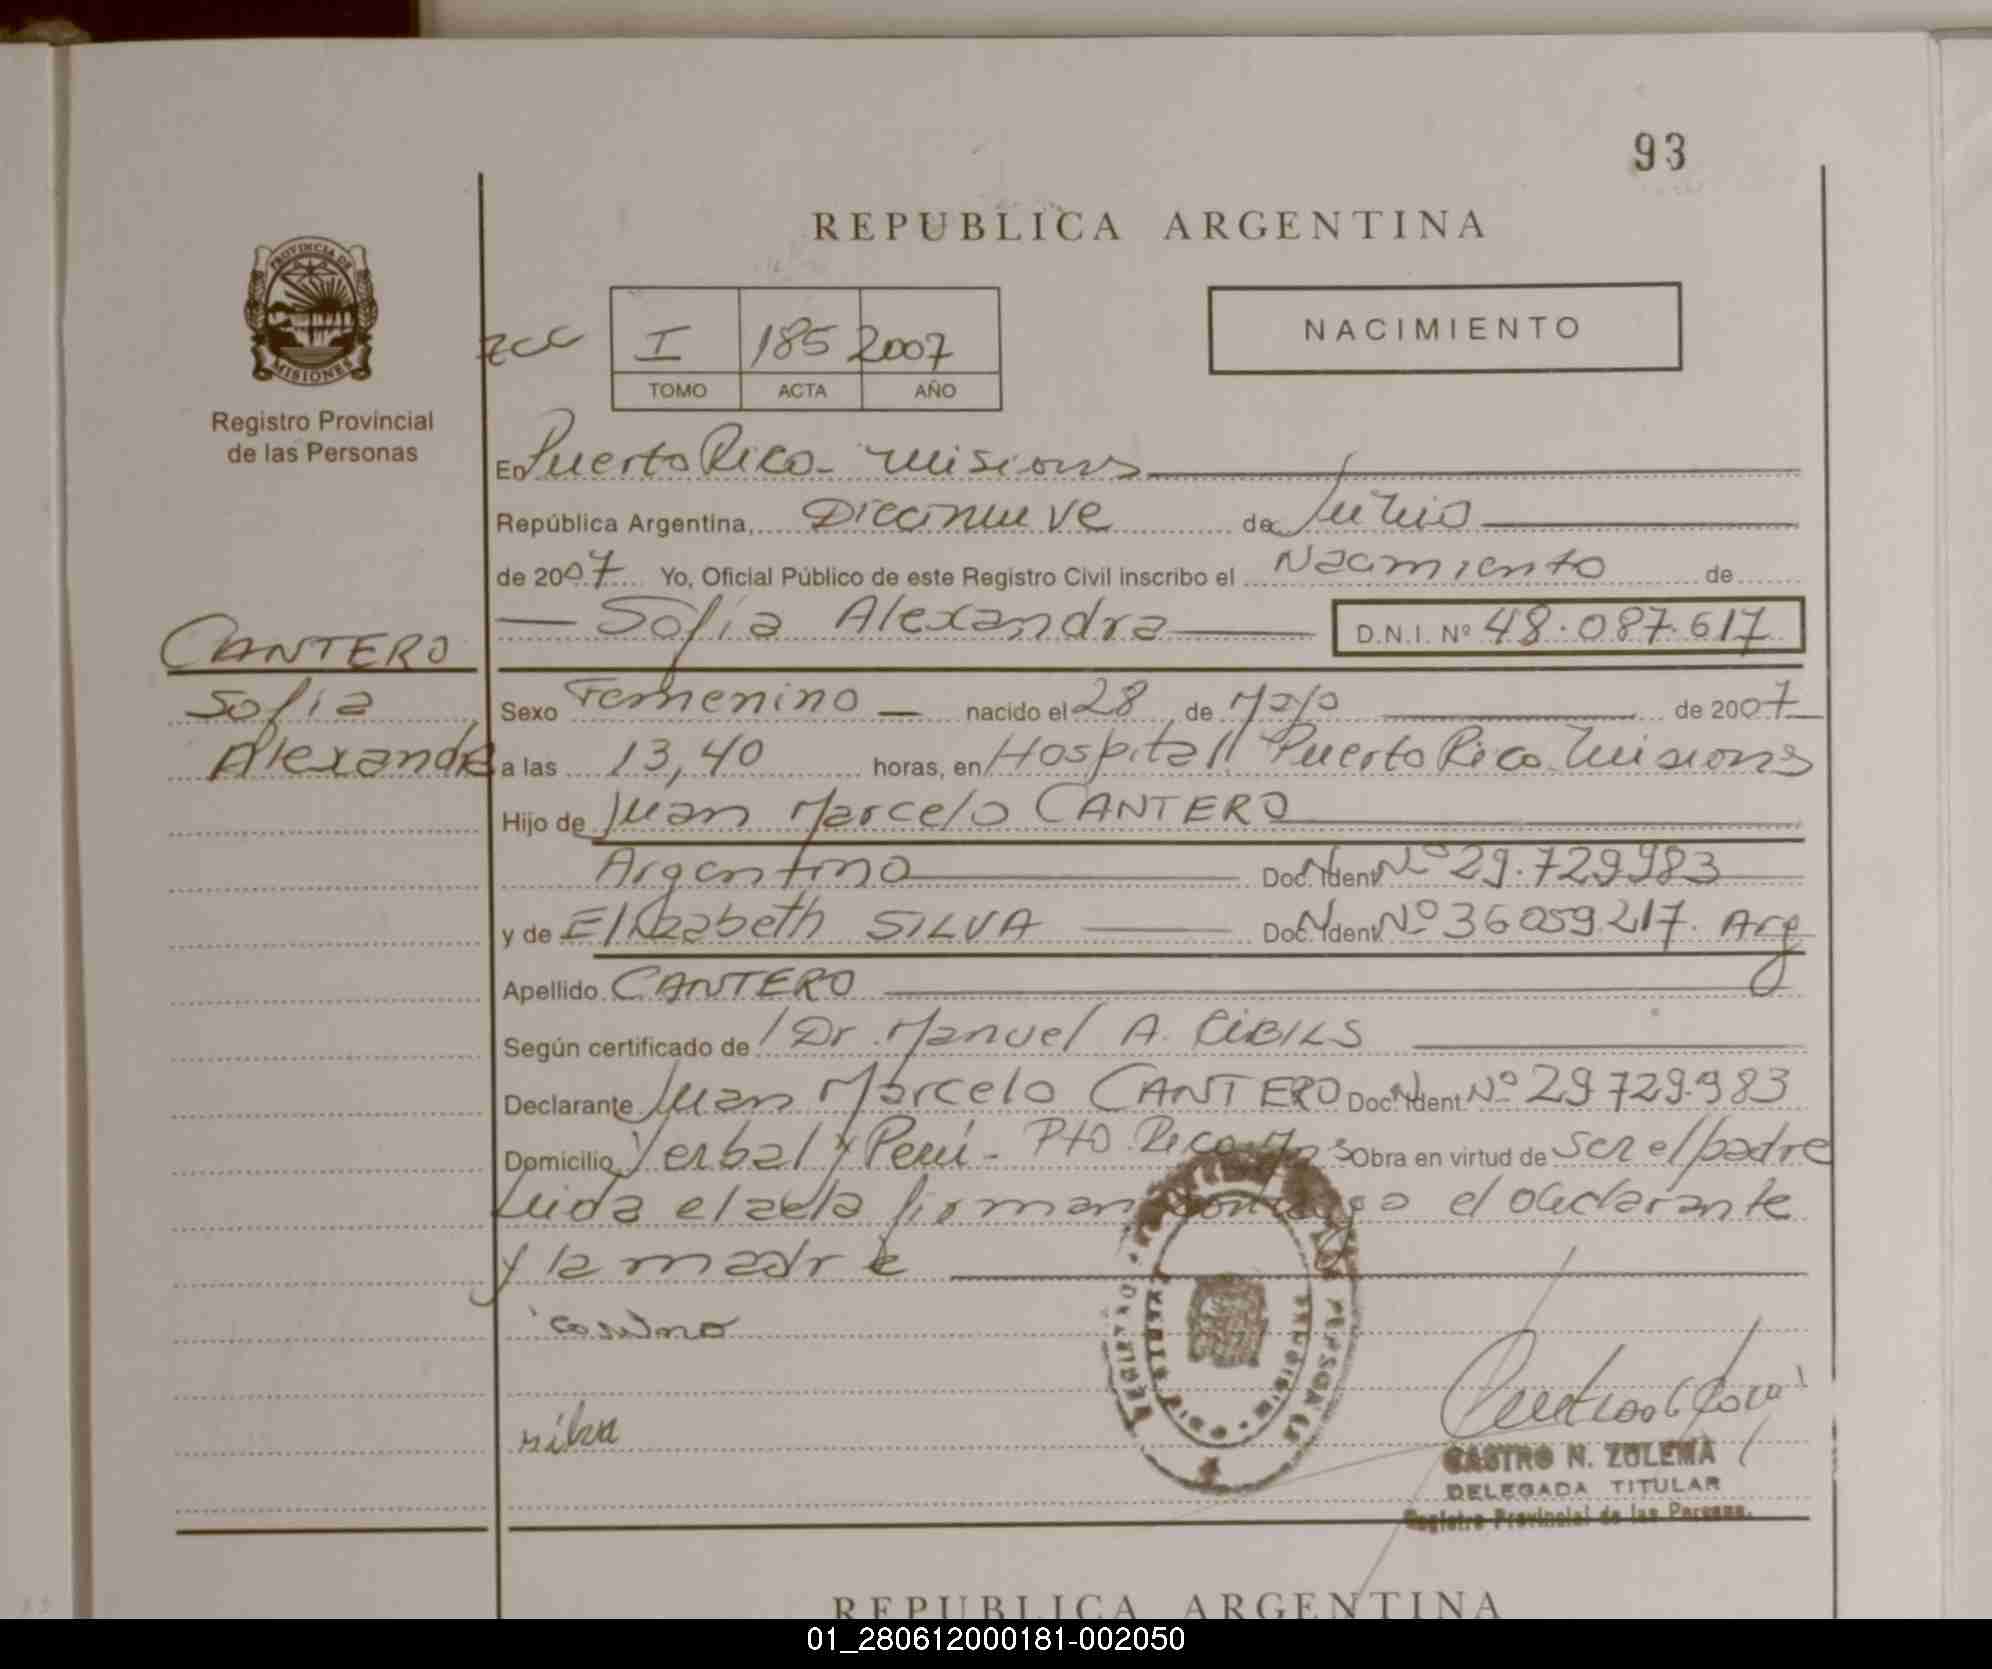 93
REPUBLICA ARGENTINA
PROVINCIA DE
MISIONES
Registro Provincial
de las Personas
I 185 2007
TOMO ACTA AÑO
NACIMIENTO
En Puerto Rico - Misiones
República Argentina, Diecinueve de Junio
de 2007 Yo, Oficial Público de este Registro Civil inscribo el Nacimiento de
Sofia Alexandra D.N.I. Nº 48.087.617
CANTERO
Sofia
Alexandra
Sexo Femenino nacido el 28 de Mayo de 2007
a las 13,40 horas, en Hospital Puerto Rico Misiones
Hijo de Juan Marcelo CANTERO
Argentino Doc. Ident. Nº 29.729983
y de Elizabeth SILVA Doc. Ident. Nº 36059217. Arg
Apellido CANTERO
Según certificado de Dr. Manuel A. CIBILS
Declarante Juan Marcelo CANTERO Doc. Ident. Nº 29729.983
Domicilio Yerbal y Perú - Pto Rico Mnes Obra en virtud de ser el padre
Leida el acta firman conmigo el declarante
y la madre
silva
CASTRO N. ZULEMA
DELEGADA TITULAR
Registro Provincial de las Personas.
REPUBLICA ARGENTINA
01_280612000181-002050